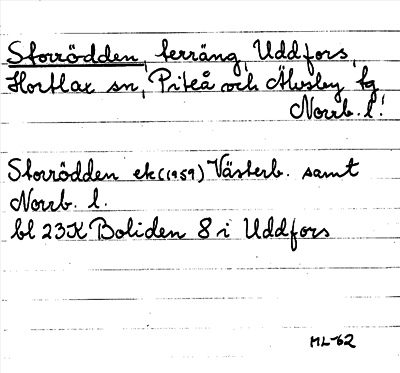 Storrödden, terräng, Uddfors,
Hortlax sn, Piteå och Älvsby tg
Norrb. l.
Storrödden ek (1959) Västerb. samt
Norrb. l.
bl 23K Boliden 8 i Uddfors
ML-62